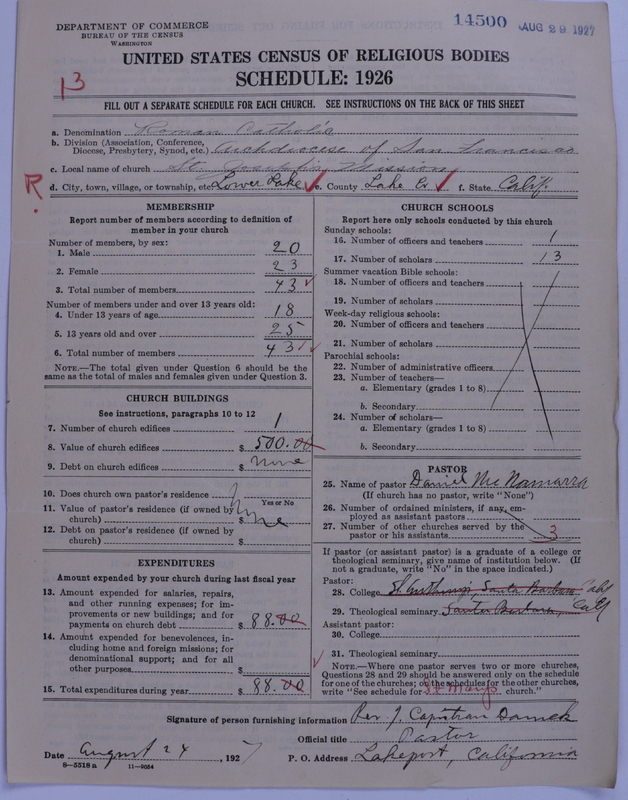 DEPARTMENT OF COMMERCE
BUREAU OF THE CENSUS
WASHINGTON
14500 AUG 29 1927
UNITED STATES CENSUS OF RELIGIOUS BODIES
SCHEDULE: 1926
13
FILL OUT A SEPARATE SCHEDULE FOR EACH CHURCH. SEE INSTRUCTIONS ON THE BACK OF THIS SHEET
a. Denomination Roman Catholic
b. Division (Association, Conference, Diocese, Presbytery, Synod, etc.) Archdiocese of San Francisco
c. Local name of church St. Joseph's Mission
R.
d. City, town, village, or township, etc. Lower Lake e. County Lake Co f. State Calif.
MEMBERSHIP
Report number of members according to definition of
member in your church
Number of members, by sex:
1. Male 20
2. Female 23
3. Total number of members 43
Number of members under and over 13 years old:
4. Under 13 years of age 18
5. 13 years old and over 25
6. Total number of members 43
NOTE.—The total given under Question 6 should be
same as the total of males and females given under Question 3.
CHURCH BUILDINGS
See instructions, paragraphs 10 to 12
7. Number of church edifices 1
8. Value of church edifices $ 500.00
9. Debt on church edifices $ none
10. Does church own pastor's residence
Yes or No
11. Value of pastor's residence (if owned by
church) $
12. Debt on pastor's residence (if owned by
church) $
EXPENDITURES
Amount expended by your church during last fiscal year
13. Amount expended for salaries, repairs,
and other running expenses; for im-
provements or new buildings; and for
payments on church debt $ 88.00
14. Amount expended for benevolences, in-
cluding home and foreign missions; for
denominational support; and for all
other purposes $
15. Total expenditures during year $ 88.00
CHURCH SCHOOLS
Report here only schools conducted by this church
Sunday schools:
16. Number of officers and teachers 1
17. Number of scholars 13
Summer vacation Bible schools:
18. Number of officers and teachers
19. Number of scholars
Week-day religious schools:
20. Number of officers and teachers
21. Number of scholars
Parochial schools:
22. Number of administrative officers
23. Number of teachers—
a. Elementary (grades 1 to 8)
b. Secondary
24. Number of scholars—
a. Elementary (grades 1 to 8)
b. Secondary
PASTOR
25. Name of pastor Daniel Mc Namarra
(If church has no pastor, write "None")
26. Number of ordained ministers, if any, em-
ployed as assistant pastors
27. Number of other churches served by the
pastor or his assistants 3
If pastor (or assistant pastor) is a graduate of a college or
theological seminary, give name of institution below. (If
not a graduate, write "No" in the space indicated.)
Pastor:
28. College St. Santa Barbara Calif
29. Theological seminary Santa Barbara, Calf
Assistant pastor:
30. College
31. Theological seminary
NOTE.—Where one pastor serves two or more churches,
Questions 28 and 29 should be answered only on the schedule
for one of the churches; on the schedules for the other churches,
write "See schedule for St Marys church."
Signature of person furnishing information Rev. J. Capistran Damek
Official title Pastor
Date August 24, 1927 P. O. Address Lakeport, California
8—5518a 11—9684